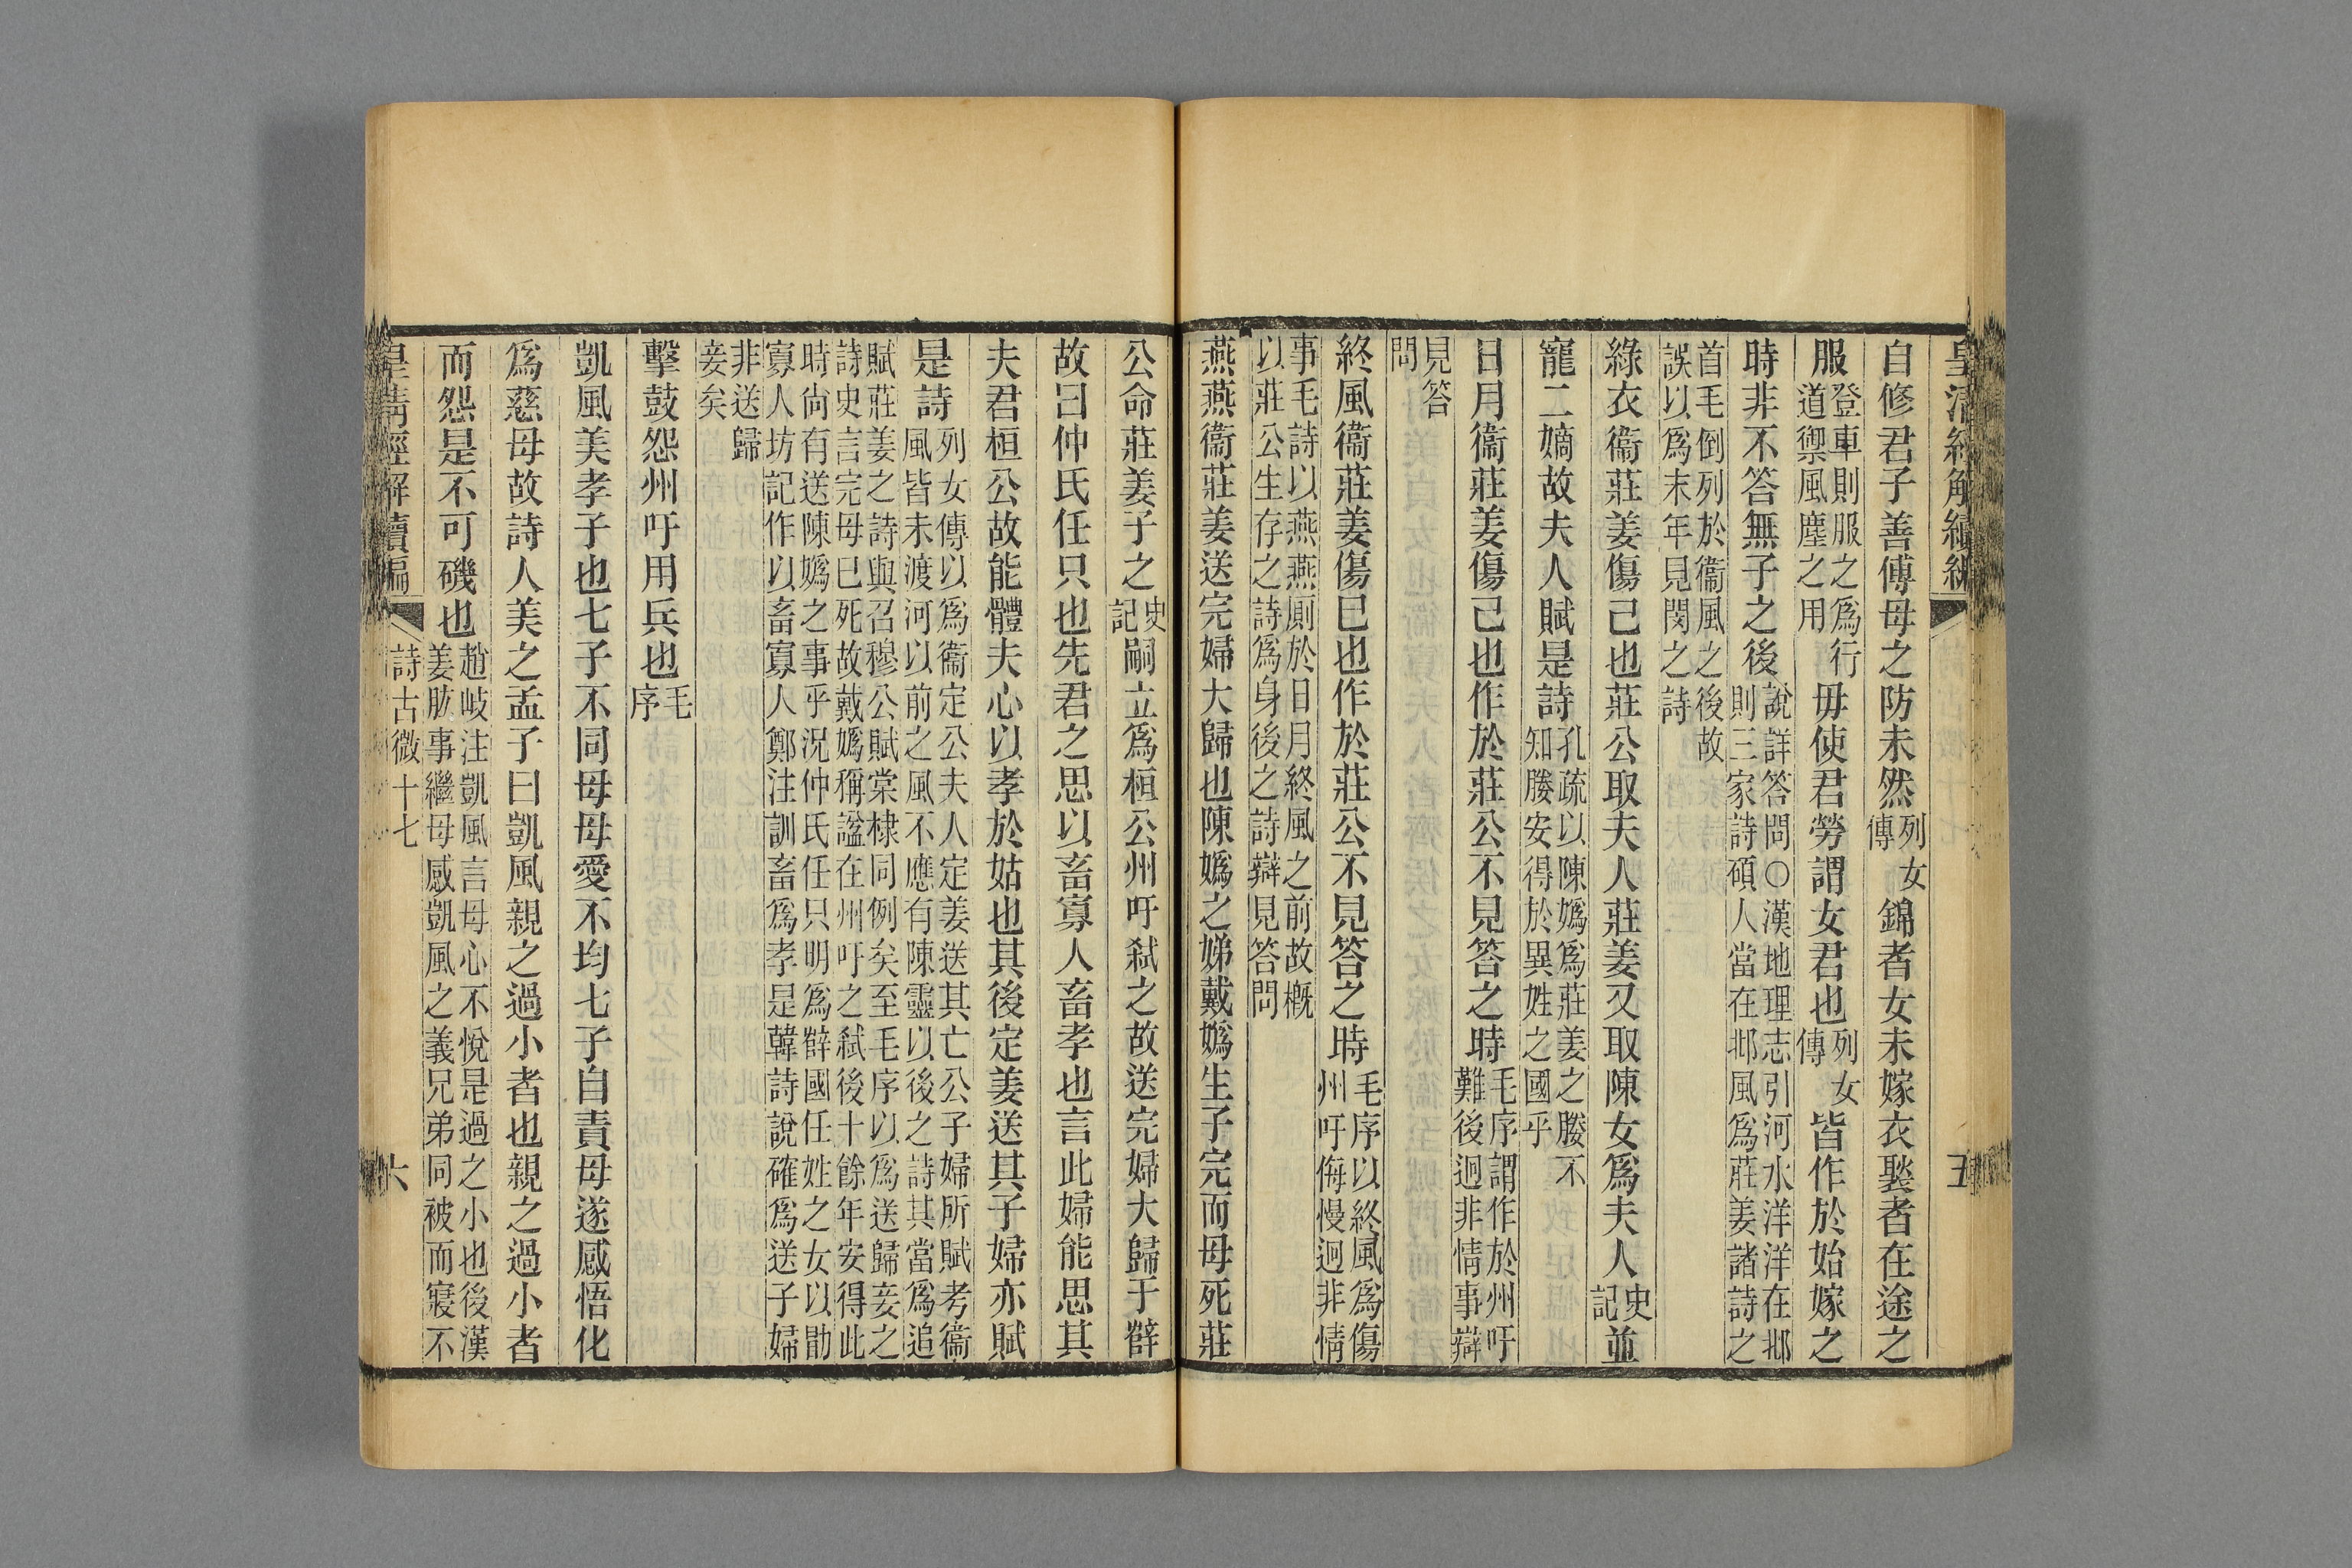 皇清經解續編
五
自修君子善傅母之防未然列女傳錦者女未嫁衣褧者在途之
服登車則服之爲行道禦風塵之用毋使君勞謂女君也列女傳皆作於始嫁之
時非不答無子之後說詳答問○漢地理志引河水洋洋在邶則三家詩碩人當在邶風爲莊姜諸詩之
首毛倒列於衞風之後故誤以爲末年見閔之詩
綠衣衞莊姜傷己也莊公取夫人莊姜又取陳女爲夫人史記並
寵二嫡故夫人賦是詩孔疏以陳嬀爲莊姜之媵不知媵安得於異姓之國乎
日月衞莊姜傷己也作於莊公不見答之時毛序謂作於州吁難後迥非情事辯
見答問
終風衞莊姜傷巳也作於莊公不見答之時毛序以終風爲傷州吁侮慢迥非情
事毛詩以燕燕厠於日月終風之前故槪以莊公生存之詩爲身後之詩辯見答問
燕燕衞莊姜送完婦大歸也陳嬀之娣戴嬀生子完而母死莊
公命莊姜子之史記嗣立爲桓公州吁弒之故送完婦大歸于薛
故曰仲氏任只也先君之思以畜寡人畜孝也言此婦能思其
夫君桓公故能體夫心以孝於姑也其後定姜送其子婦亦賦
是詩列女傳以爲衞定公夫人定姜送其亡公子婦所賦考衞風皆未渡河以前之風不應有陳靈以後之詩其當爲追
賦莊姜之詩與召穆公賦棠棣同例矣至毛序以爲送歸妾之詩史言完母已死故戴嬀稱諡在州吁之弒後十餘年安得此
時尙有送陳嬀之事乎況仲氏任只明爲薛國任姓之女以勖寡人坊記作以畜寡人鄭注訓畜爲孝是韓詩說確爲送子婦
非送歸妾矣
擊鼓怨州吁用兵也毛序
凱風美孝子也七子不同母母愛不均七子自責母遂感悟化
爲慈母故詩人美之孟子曰凱風親之過小者也親之過小者
而怨是不可磯也趙岐注凱風言母心不悅是過之小也後漢姜肱事繼母感凱風之義兄弟同被而寢不
皇淸經解續編
詩古微十七
六